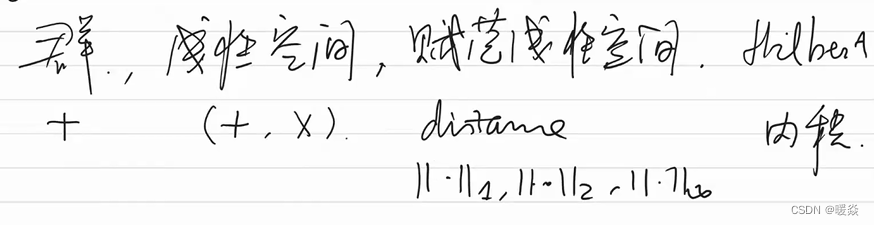 群., 线性空间, 赋范线性空间. Hilbert
+ (+, ×). distance 内积.
||·||₁, ||·||₂, ||·||∞
CSDN @暖焱